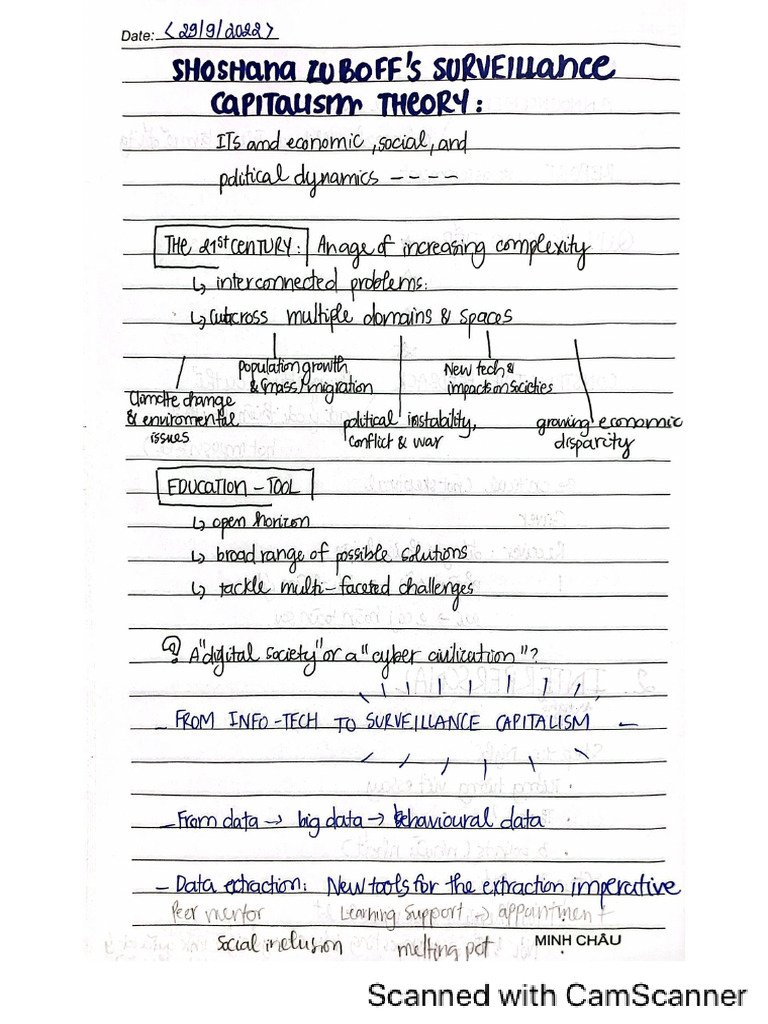 Date: <29/9/2022>
SHOSHANA ZUBOFF'S SURVEILLANCE
CAPITALISM THEORY:
ITs and economic, social, and
political dynamics ----
THE 21st CENTURY: An age of increasing complexity
↳ interconnected problems:
↳ cut cross multiple domains & spaces
population growth & mass/migration
New tech & impacts on societies
Climate change & enviromental issues
political instability, conflict & war
growing economic disparity
EDUCATION - TOOL
↳ open horizon
↳ broad range of possible solutions
↳ tackle multi-faceted challenges
Q A "digital society" or a "cyber civilization"?
FROM INFO-TECH TO SURVEILLANCE CAPITALISM
- From data → big data → behavioural data
- Data extraction: New tools for the extraction imperative
Peer mentor Learning support → appointment
Social inclusion melting pot MINH CHÂU
Scanned with CamScanner